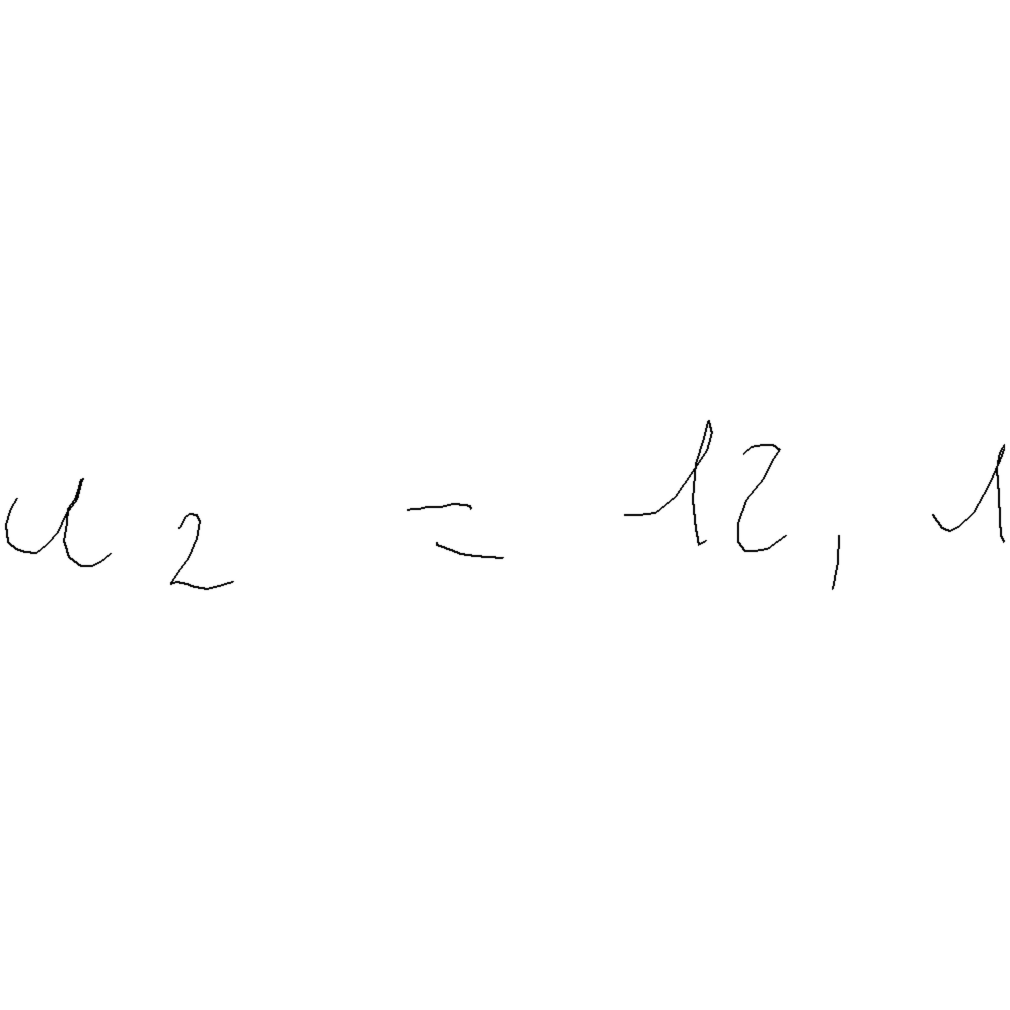 u₂ = 12, 1